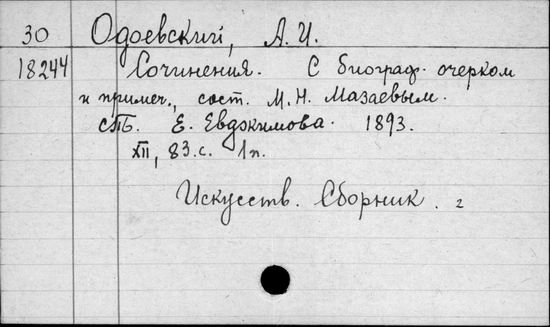 30 Одоевский, А. И.
18244 Сочинения. С биограф. очерком
и примеч., сост. М. Н. Мазаевым.
СПБ. Е. Евдокимова. 1893.
XII, 83 с. 1 п.
Искусств. Сборник. г